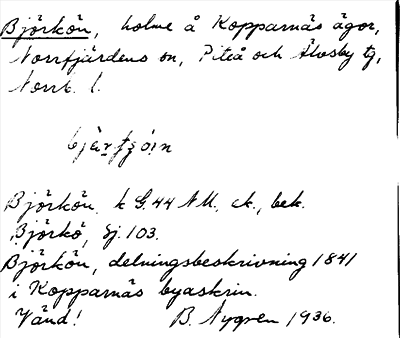 Björkön, holme å Kopparnäs ägor,
Norrfjärdens sn, Piteå och Älvsby tg,
Norrb. l.
Björkön. k G.44 NU, ek., bek.
Björkö, Sj. 103.
Björkön, delningsbeskrivning 1841
i Kopparnäs byaskrin.
Vänd! B. Nygren 1936.